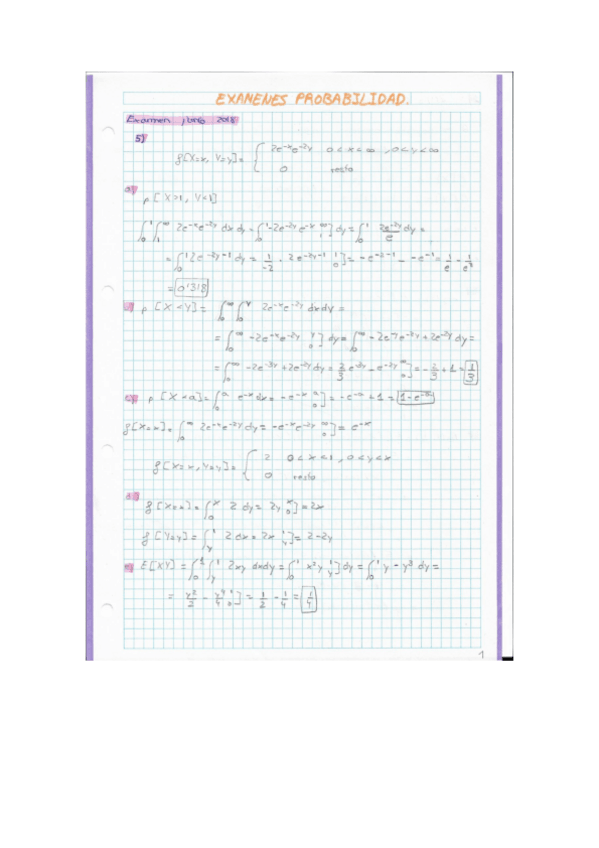 EXAMENES PROBABILIDAD.
Examen junio 2018
5)
f[X=x, Y=y] = { 2e^-x e^-2y 0<x<∞ , 0<y<∞
0 resto
a)
p[X>1, Y<1]
∫₀¹ ∫₁^∞ 2e^-x e^-2y dx dy = ∫₀¹ -2e^-2y e^-x ]₁^∞ dy = ∫₀¹ 2e^-2y/e dy =
= ∫₀¹ 2e^-2y-1 dy = 1/-2 · 2e^-2y-1 ]₀¹ = -e^-2-1 - -e^-1 = 1/e - 1/e³
= 0'318
p[X<Y] = ∫₀^∞ ∫₀^y 2e^-x e^-2y dx dy =
= ∫₀^∞ -2e^-x e^-2y ]₀^y dy = ∫₀^∞ -2e^-y e^-2y + 2e^-2y dy =
= ∫₀^∞ -2e^-3y + 2e^-2y dy = 2/3 e^-3y - e^-2y ]₀^∞ = -2/3 + 1 = 1/3
c) p[X<a] = ∫₀^a e^-x dx = -e^-x ]₀^a = -e^-a + 1 = 1-e^-a
f[X=x] = ∫₀^∞ 2e^-x e^-2y dy = -e^-x e^-2y ]₀^∞ = e^-x
f[X=x, Y=y] = { 2 0<x<1 , 0<y<x
0 resto
f[X=x] = ∫₀^x 2 dy = 2y ]₀^x = 2x
f[Y=y] = ∫_y¹ 2 dx = 2x ]_y¹ = 2-2y
E[XY] = ∫₀¹ ∫_y¹ 2xy dx dy = ∫₀¹ x²y ]_y¹ dy = ∫₀¹ y - y³ dy =
= y²/2 - y⁴/4 ]₀¹ = 1/2 - 1/4 = 1/4
1